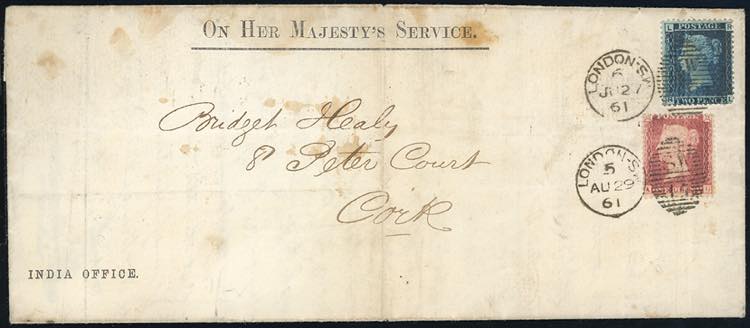 ON HER MAJESTY'S SERVICE.
POSTAGE
TWO PENCE
LONDON-S.W
6
JU 27
61
Bridget Healy
8 Peter Court
Cork
LONDON-S.W
5
AU 29
61
INDIA OFFICE.